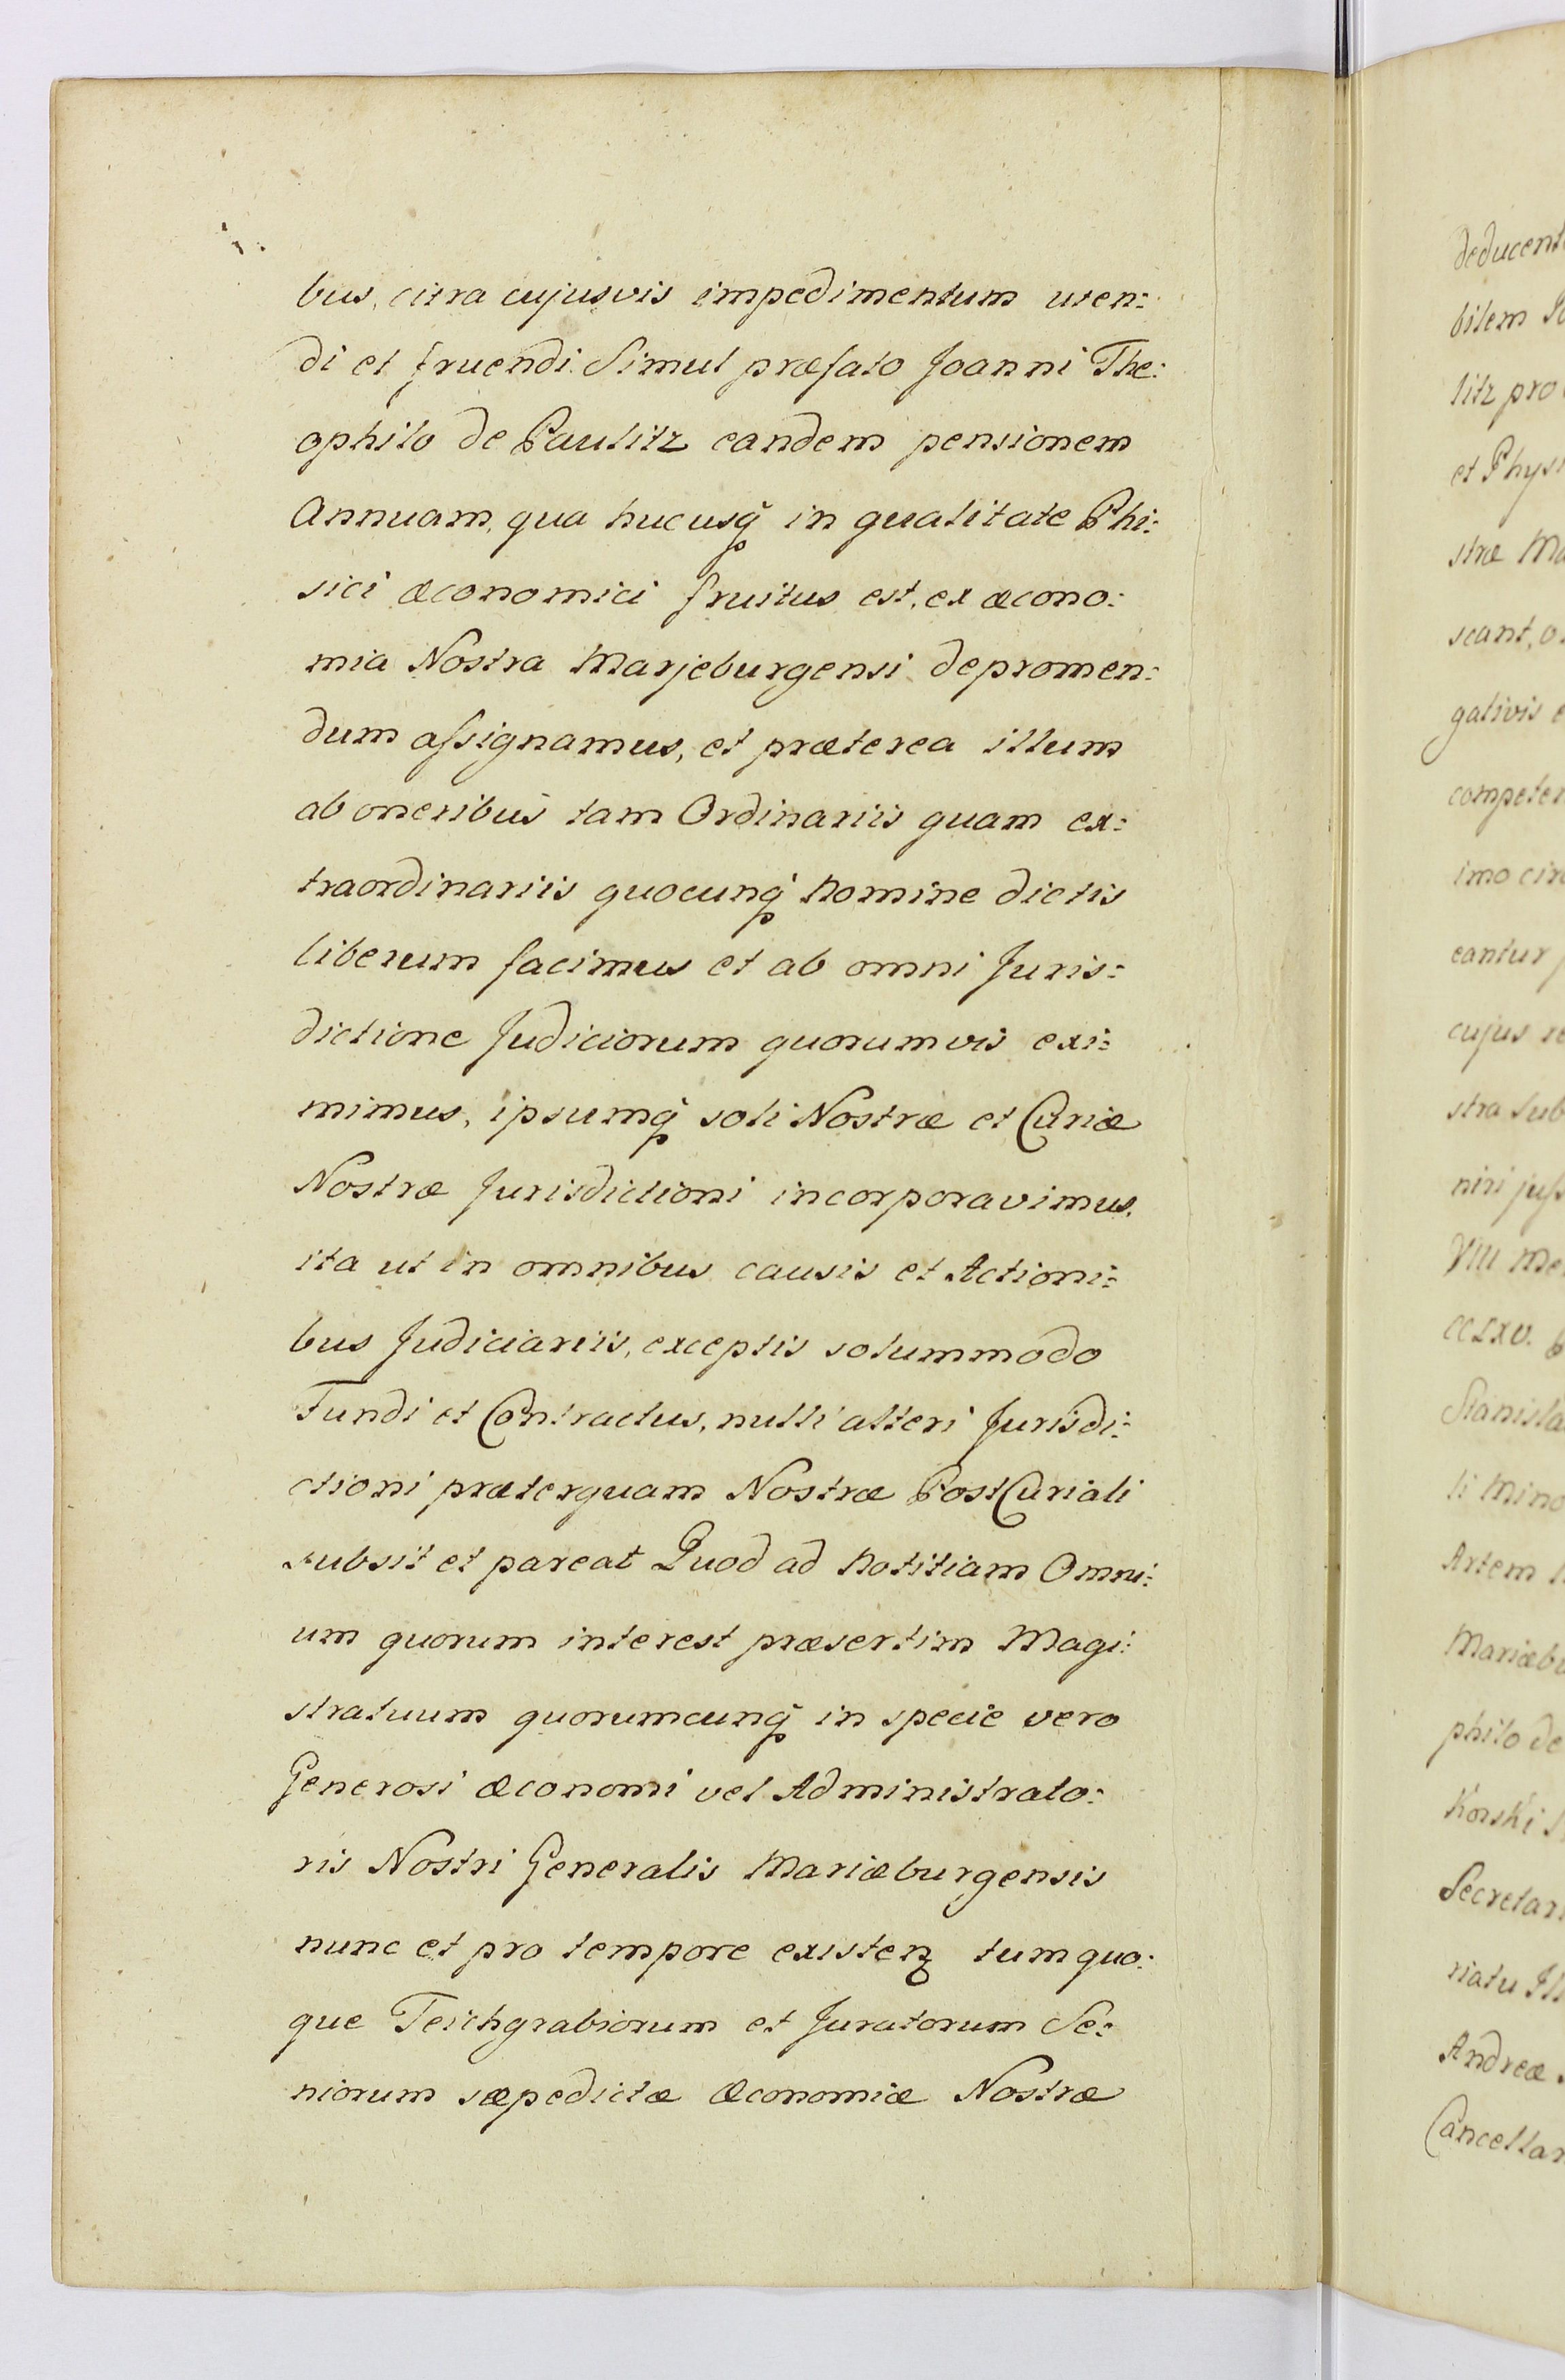 bus, citra cujusvis impedimentum uten:
di et fruendi. Simul præfato Joanni The:
ophilo de Paulitz eandem pensionem
Annuam, qua hucusq̃ in qualitate Phi:
sici œconomici fruitus est, ex œcono:
mia Nostra Marjeburgensi depromen:
dum assignamus, et præterea illum
ab oneribus tam Ordinariis quam ex:
traordinariis quocunq̃ Nomine dictis
liberum facimus et ab omni Juris:
dictione Judiciorum quorumvis exi:
mimus, ipsumq̃ soli Nostræ et Curiæ
Nostræ Jurisdictioni incorporavimus,
ita ut in omnibus causis et Actioni:
bus Judiciariis, exceptis solummodo
Fundi et Contractus, nulli alteri Jurisdi:
ctioni præterquam Nostræ PostCuriali
subsit et pareat Quod ad Notitiam Omni:
um quorum interest præsertim Magi:
stratuum quorumcunq̃ in specie vero
Generosi œconomi vel Administrato:
ris Nostri Generalis Mariæburgensis
nunc et pro tempore existenʒ tum quo:
que Teichgrabiorum et Juratorum Se:
niorum sæpedictæ Œconomiæ Nostræ
deducent
bilem
litz pro
et Physi
stræ Ma
scant, o
gativis e
competen
imo cir
eantur
cujus re
stra sub
niri juss
VIII Me
CCLXV.
Stanisla
li Mino
Artem
Mariæbu
philo de
Korski S
Secretar
riatu Ill
Andreæ
Cancellar